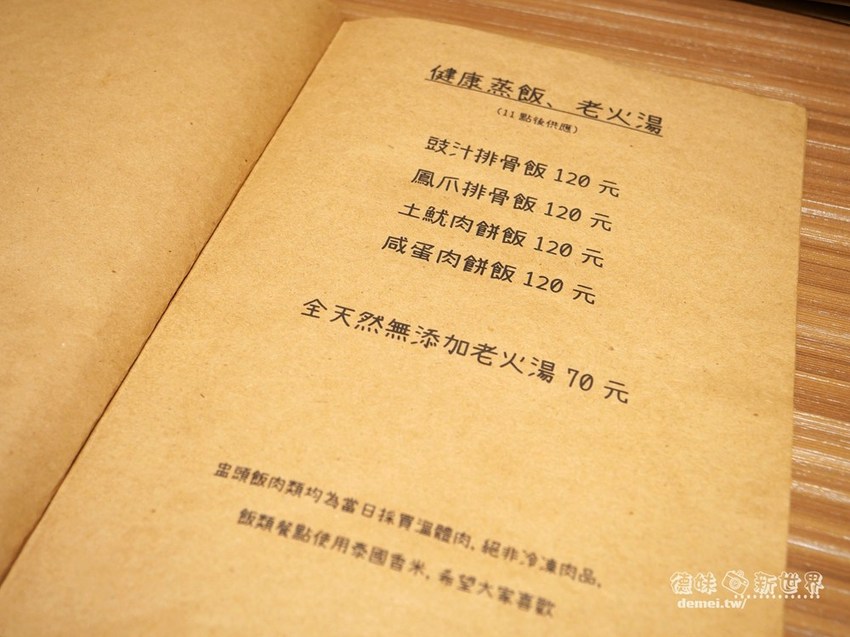 健康蒸飯、老火湯
(11點後供應)
豉汁排骨飯 120 元
鳳爪排骨飯 120 元
土魷肉餅飯 120 元
咸蛋肉餅飯 120 元
全天然無添加老火湯 70 元
盅頭飯肉類均為當日採買溫體肉,絕非冷凍肉品,
飯類餐點使用泰國香米,希望大家喜歡
德味 新世界
demei.tw/